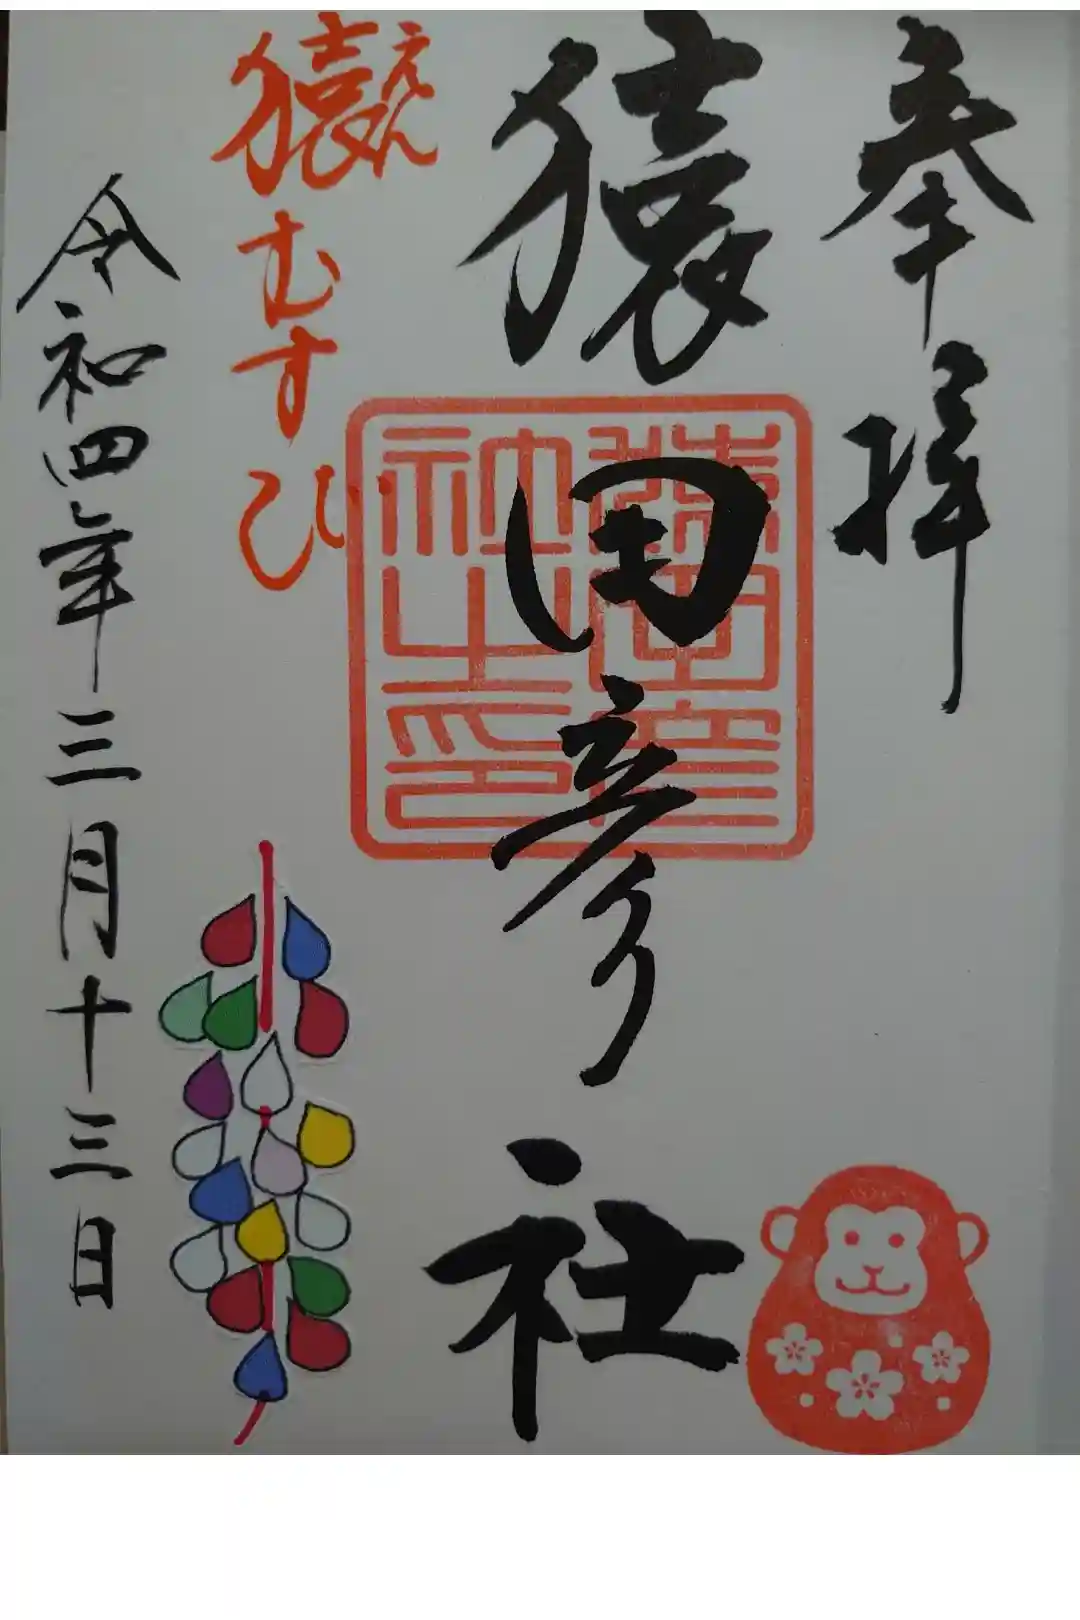 奉拝
猿田彦社
猿田彦
社之印
えん
猿むすび
令和四年三月十三日